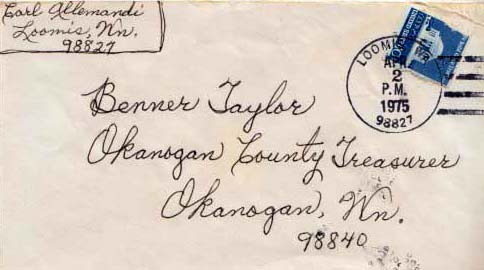 Earl Allemandi
Loomis, Wn.
98827
LOOMIS
APR
2
P.M.
1975
98827
Benner Taylor
Okanogan County Treasurer
Okanogan, Wn.
98840